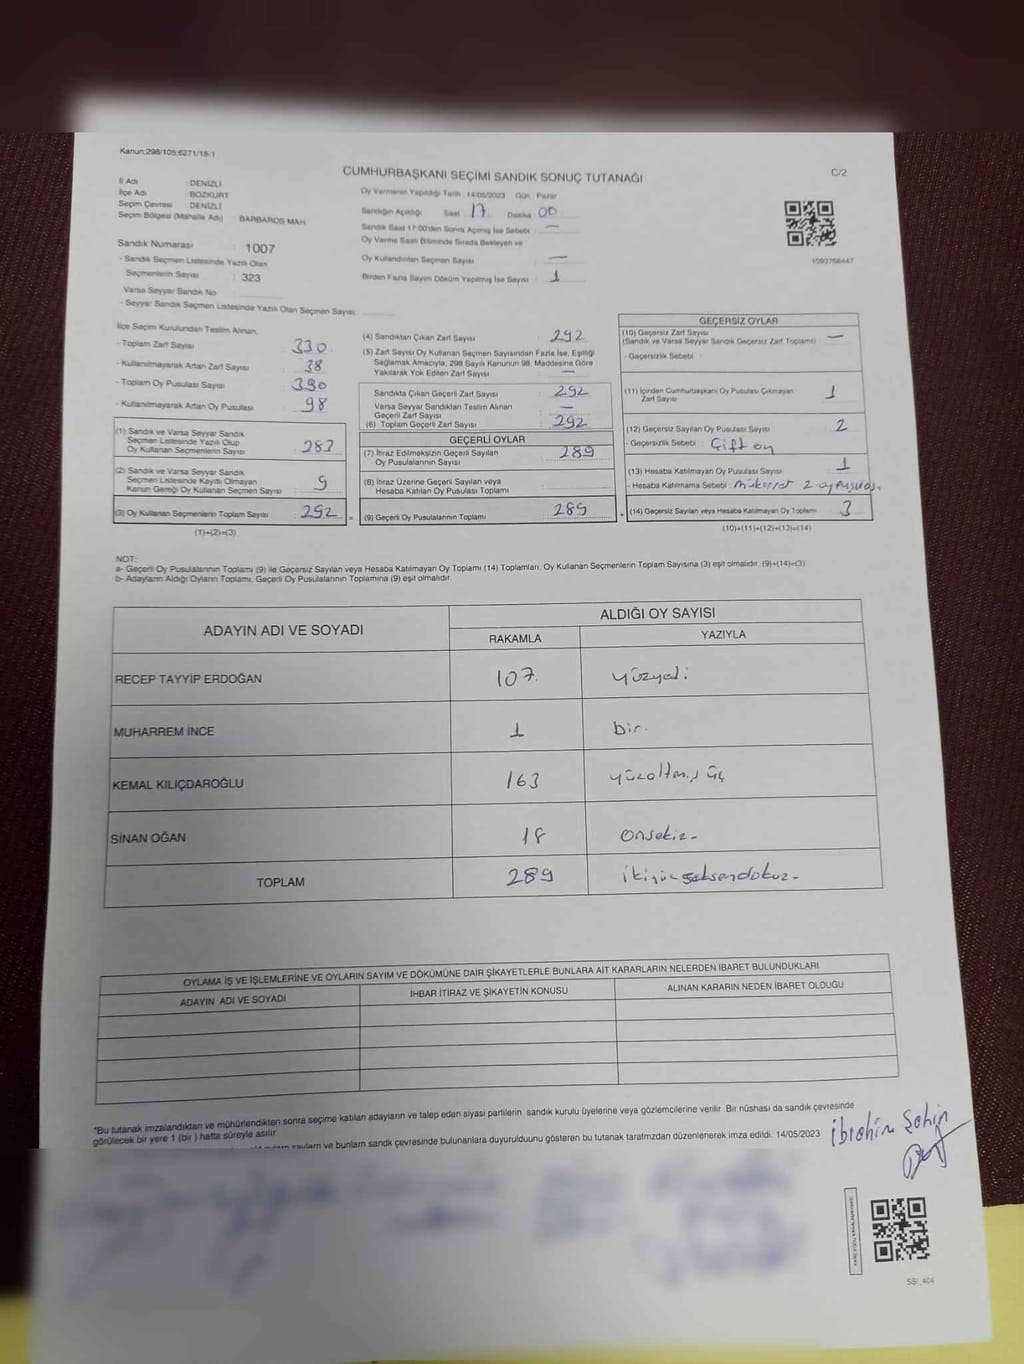 Kanun:298/105,6271/18-1
CUMHURBAŞKANI SEÇİMİ SANDIK SONUÇ TUTANAĞI
C/2
İl Adı : DENİZLİ
İlçe Adı : BOZKURT
Seçim Çevresi : DENİZLİ
Seçim Bölgesi (Mahalle Adı) : BARBAROS MAH.
Sandık Numarası : 1007
- Sandık Seçmen Listesinde Yazılı Olan
Seçmenlerin Sayısı : 323
Varsa Seyyar Sandık No
- Seyyar Sandık Seçmen Listesinde Yazılı Olan Seçmen Sayısı:
Oy Vermenin Yapıldığı Tarih : 14/05/2023 Gün : Pazar
Sandığın Açıldığı Saat 17 Dakika 00
Sandık Saat 17:00'den Sonra Açılmış İse Sebebi : —
Oy Verme Saati Bitiminde Sırada Bekleyen ve
Oy Kullandırılan Seçmen Sayısı : —
Birden Fazla Sayım Döküm Yapılmış İse Sayısı : 1
1093768447
İlçe Seçim Kurulundan Teslim Alınan;
- Toplam Zarf Sayısı : 330
- Kullanılmayarak Artan Zarf Sayısı : 38
- Toplam Oy Pusulası Sayısı : 390
- Kullanılmayarak Artan Oy Pusulası : 98
(1) Sandık ve Varsa Seyyar Sandık
Seçmen Listesinde Yazılı Olup
Oy Kullanan Seçmenlerin Sayısı : 283
(2) Sandık ve Varsa Seyyar Sandık
Seçmen Listesinde Kayıtlı Olmayan
Kanun Gereği Oy Kullanan Seçmen Sayısı : 9
(3) Oy Kullanan Seçmenlerin Toplam Sayısı : 292
(1)+(2)=(3)
(4) Sandıktan Çıkan Zarf Sayısı : 292
(5) Zarf Sayısı Oy Kullanan Seçmen Sayısından Fazla İse, Eşitliği
Sağlamak Amacıyla, 298 Sayılı Kanunun 98. Maddesine Göre
Yakılarak Yok Edilen Zarf Sayısı : —
Sandıkta Çıkan Geçerli Zarf Sayısı : 292
Varsa Seyyar Sandıktan Teslim Alınan
Geçerli Zarf Sayısı : —
(6) Toplam Geçerli Zarf Sayısı : 292
GEÇERLİ OYLAR
(7) İtiraz Edilmeksizin Geçerli Sayılan
Oy Pusulalarının Sayısı : 289
(8) İtiraz Üzerine Geçerli Sayılan veya
Hesaba Katılan Oy Pusulası Toplamı
(9) Geçerli Oy Pusulalarının Toplamı : 289
GEÇERSİZ OYLAR
(10) Geçersiz Zarf Sayısı
(Sandık ve Varsa Seyyar Sandık Geçersiz Zarf Toplamı) : —
- Geçersizlik Sebebi :
(11) İçinden Cumhurbaşkanı Oy Pusulası Çıkmayan
Zarf Sayısı : 1
(12) Geçersiz Sayılan Oy Pusulası Sayısı : 2
- Geçersizlik Sebebi : Çift oy
(13) Hesaba Katılmayan Oy Pusulası Sayısı : 1
- Hesaba Katılmama Sebebi : mükerrer 2 oy pusulası
(14) Geçersiz Sayılan veya Hesaba Katılmayan Oy Toplamı : 3
(10)+(11)+(12)+(13)=(14)
NOT:
a- Geçerli Oy Pusulalarının Toplamı (9) ile Geçersiz Sayılan veya Hesaba Katılmayan Oy Toplamı (14) Toplamları, Oy Kullanan Seçmenlerin Toplam Sayısına (3) eşit olmalıdır. (9)+(14)=(3)
b- Adayların Aldığı Oyların Toplamı, Geçerli Oy Pusulalarının Toplamına (9) eşit olmalıdır.
ADAYIN ADI VE SOYADI
ALDIĞI OY SAYISI
RAKAMLA YAZIYLA
RECEP TAYYİP ERDOĞAN 107 yüzyedi
MUHARREM İNCE 1 bir.
KEMAL KILIÇDAROĞLU 163 yüzaltmış üç
SİNAN OĞAN 18 onsekiz-
TOPLAM 289 ikiyüzseksendokuz-
OYLAMA İŞ VE İŞLEMLERİNE VE OYLARIN SAYIM VE DÖKÜMÜNE DAİR ŞİKAYETLERLE BUNLARA AİT KARARLARIN NELERDEN İBARET BULUNDUKLARI
ADAYIN ADI VE SOYADI İHBAR İTİRAZ VE ŞİKAYETİN KONUSU ALINAN KARARIN NEDEN İBARET OLDUĞU
*Bu tutanak imzalandıktan ve mühürlendikten sonra seçime katılan adayların ve talep eden siyasi partilerin sandık kurulu üyelerine veya gözlemcilerine verilir. Bir nüshası da sandık çevresinde
görülecek bir yere 1 (bir) hafta süreyle asılır.
ve bunların sandık çevresinde bulunanlara duyurulduunu gösteren bu tutanak tarafımzdan düzenlenerek imza edildi. 14/05/2023
İbrahim Şahin
SSI_404